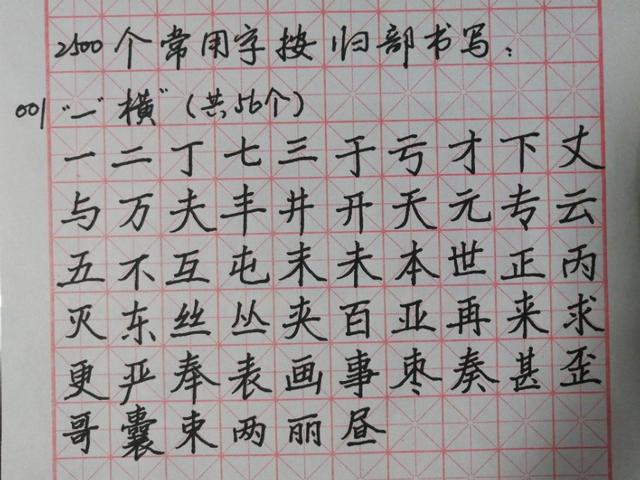 2500个常用字按归部书写：
001 "一"横"（共56个）
一二丁七三于亏才下丈
与万夫丰井开天元专云
五不互屯末未本世正丙
灭东丝丛夹百亚再来求
更严奉表画事枣奏甚歪
哥囊束两丽昼